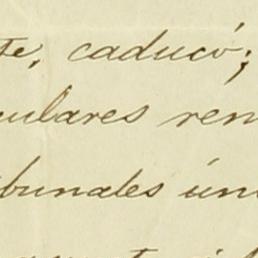 te, caducó;
ulares ren
bunales ún